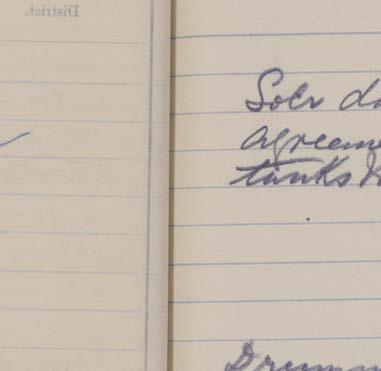 District.
Solr
agreeme
tanks
Drumm